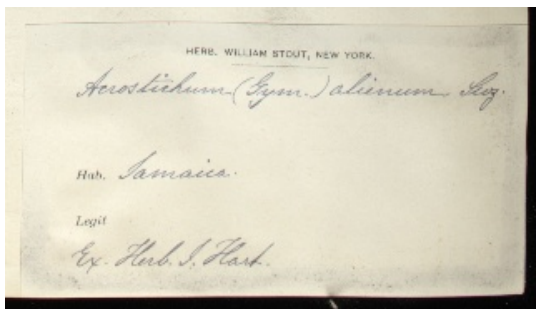 HERB. WILLIAM STOUT, NEW YORK.
Acrostichum (Gym.) alienum Swz.
Hab. Jamaica.
Legit
Ex. Herb. J. Hart.